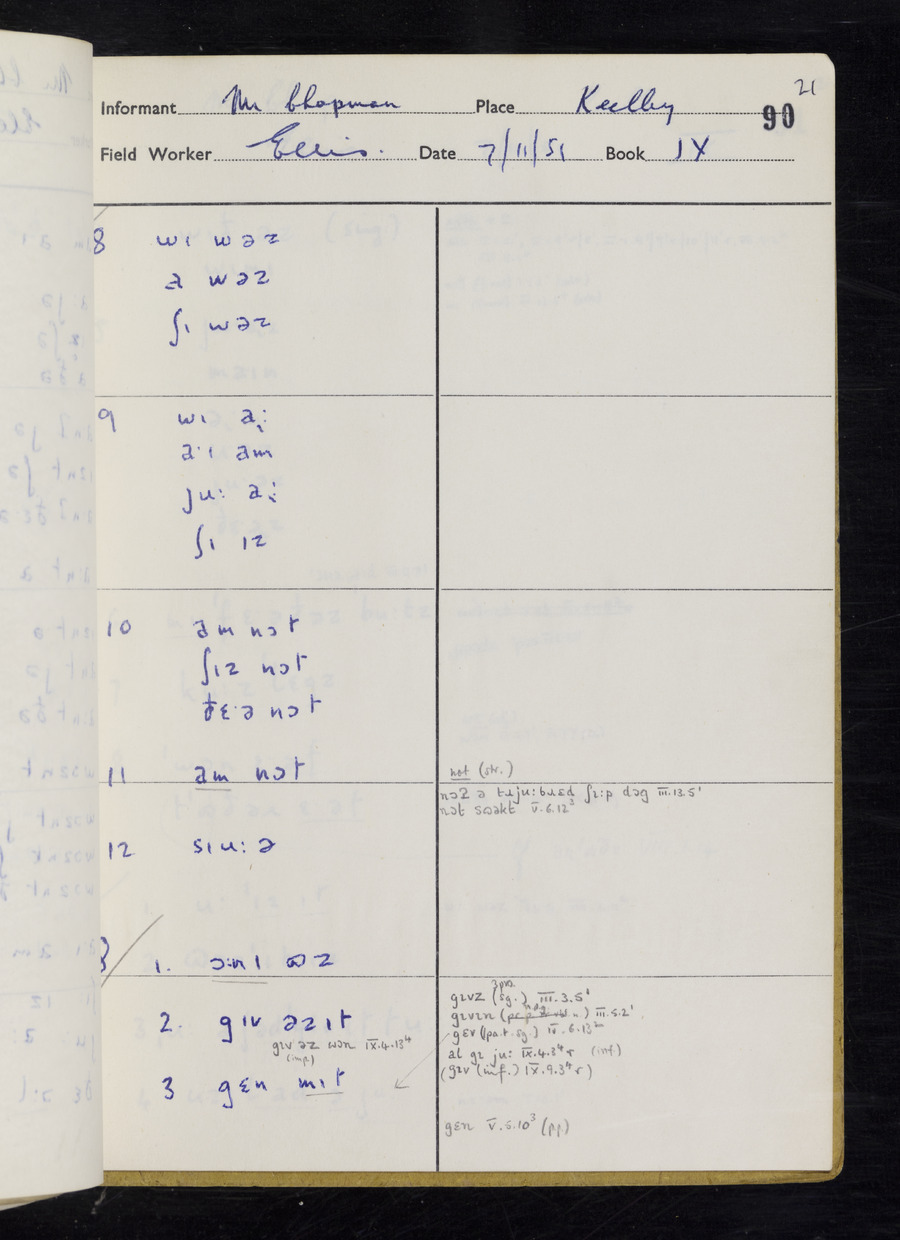 21
Informant Mr Chapman Place Keelby 90
Field Worker Ellis. Date 7/11/51 Book IX
8 wɪ wəz
a wəz
ʃɪ wəz
9 wɪ a:
a·ɪ am
ju: a:
ʃɪ ɪz
10 am nɔt
ʃɪz nɔt
ðɛ·ə nɔt
11 am nɔt
not (str.)
nɔʔ ə III.13.5'
nɔt V.6.12³
12 sɪu: ə
1. ɔ:nɪ
2. gɪv əz ɪt
gɪv əz wɔn IX.4.13⁴
(imp.)
3 gɛn mɪt
3 pr.
gɪvz (sg.) III.3.5'
gɪvɪn III.5.2'
gɛv (pa.t. sg.) IV.6.13²
al gɪ ju: IX.4.3⁴ r (inf)
(gɪv (inf.) IX.9.3⁴ r)
gɛn V.5.10³ (pp)